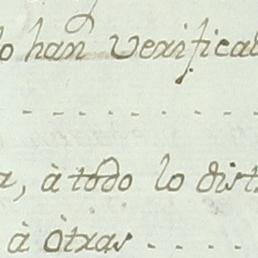 lo han verificad
- - - - - - - - - -
a, à todo lo dist
à òtras - - - -